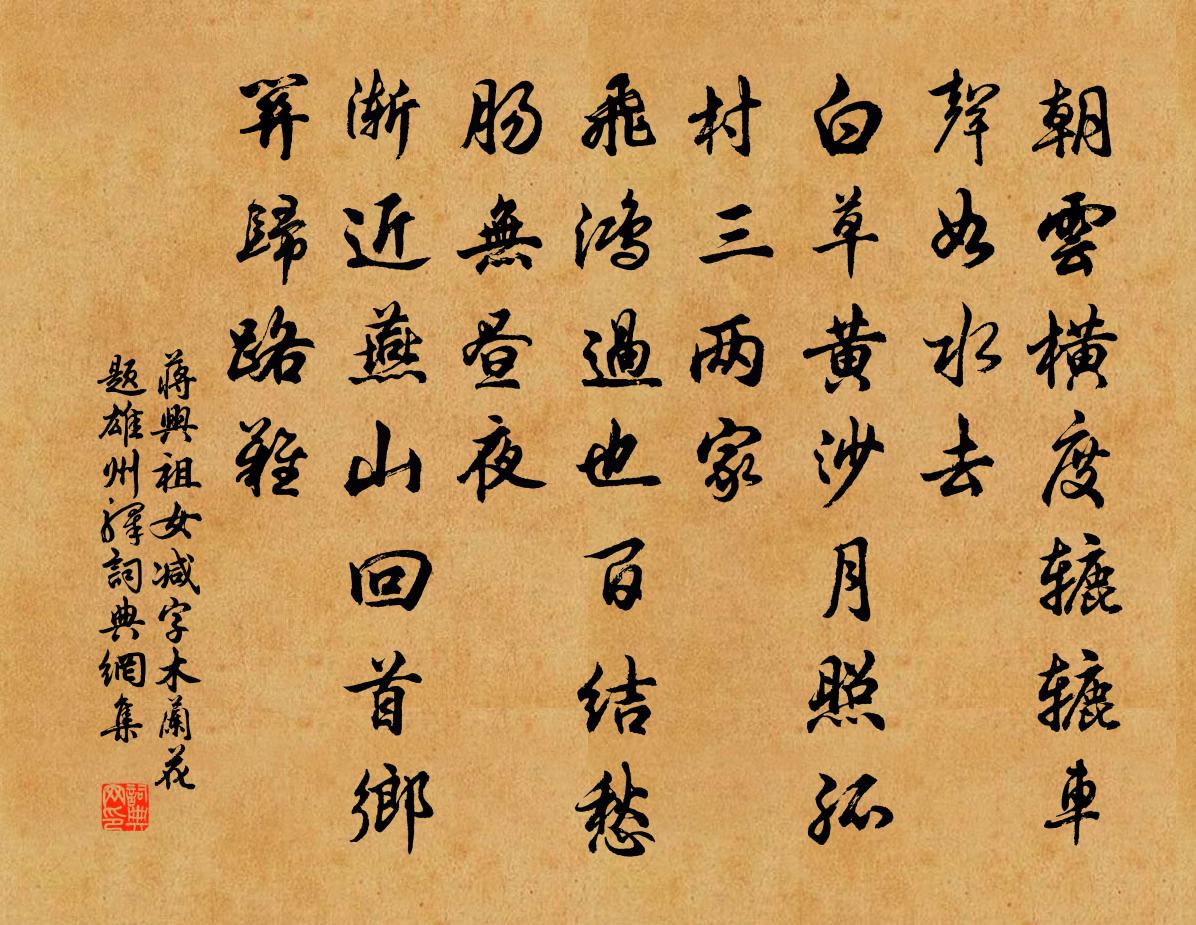 朝雲橫度轆轆車
聲如水去
白草黃沙月照孤
村三两家
飛鴻過也百結愁
腸無晝夜
漸近燕山回首鄉
關歸路難
蔣興祖女減字木蘭花
题雄州驛詞典網集
詞典
网印